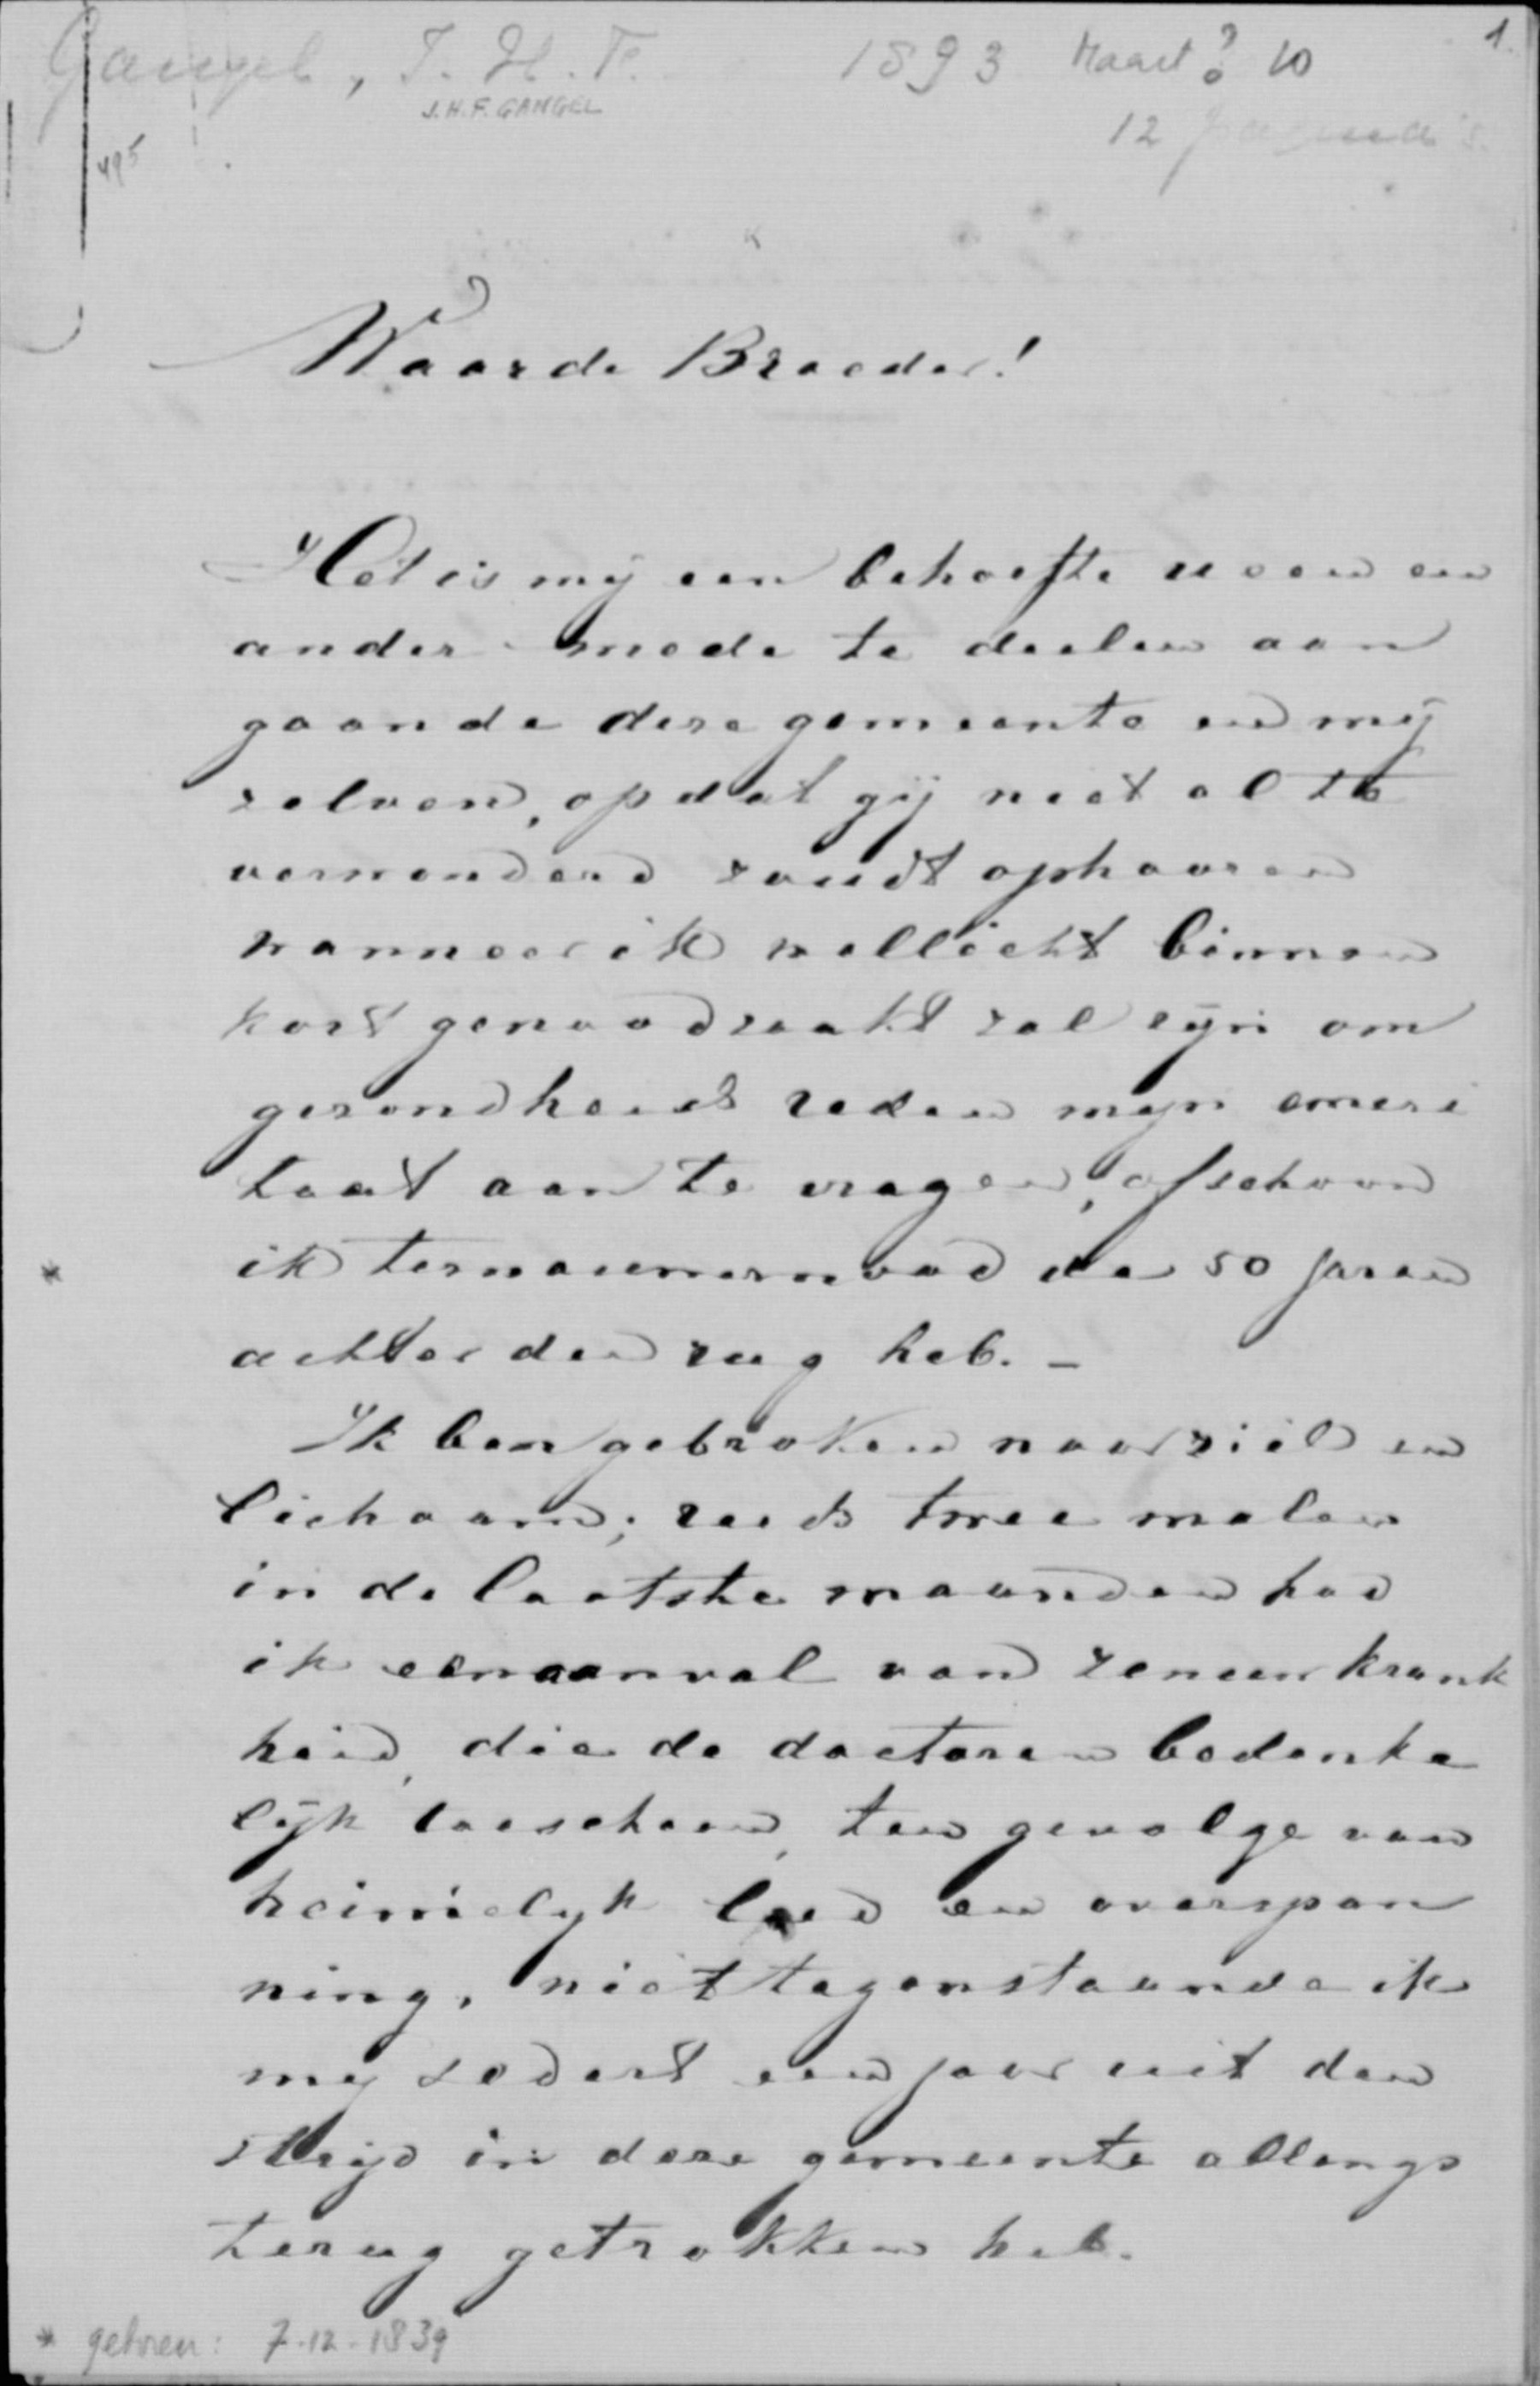 Gangel, J. H. F. 1893 Maart? 10 1.
J.H.F. GANGEL
12 pagina's.
495
Waarde Broeder!
Het is mij een behoefte u een en
ander mede te deelen aan
gaande deze gemeente en mij
zelven, opdat gij niet al te
verwonderd zoudt ophooren
wanneer ik wellicht binnen
kort genoodzaakt zal zijn om
gezondheids reden mijn emeri
taat aan te vragen, ofschoon
* ik ternauwernood de 50 jaren
achter den rug heb. –
Ik ben gebroken naar ziel en
lichaam; reeds twee malen
in de laatste maanden had
ik een aanval van zenuwkrank
heid, die de doctoren bedenke
lijk toescheen, ten gevolge van
heimelijk leed en overspan
ning, niettegenstaande ik
mij sedert een jaar uit den
strijd in deze gemeente allengs
terug getrokken heb.
* geboren: 7-12-1839